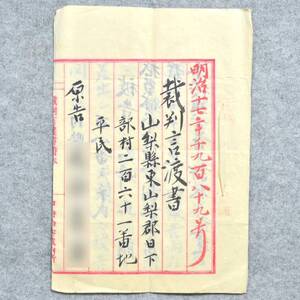 明治十七年第九百八十九号
裁判言渡書
山梨縣東山梨郡日下
部村二百六十一番地
平民
原告